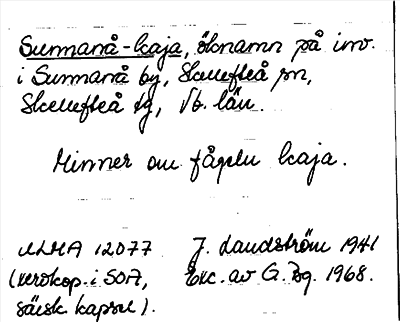 Surmanå-kaja, öknamn på inv.
i Surmanå by, Skellefteå sn,
Skellefteå tg, Vb. län.
Minner om fågeln kaja.
ULMA 12077 J. Landström 1941
(xerokop. i SOA, Exc. av G. Bg. 1968.
särsk. kapsel).